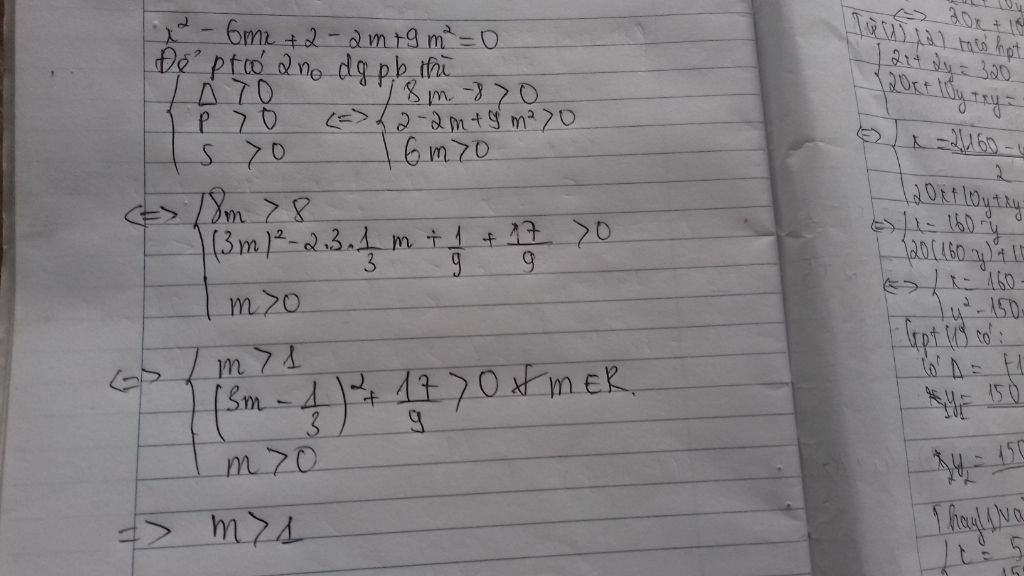 x² - 6mx + 2 - 2m + 9m² = 0
Để pt có 2 n₀ dg pb thì
{ Δ > 0
P > 0
S > 0
<=> { 8m - 8 > 0
2 - 2m + 9m² > 0
6m > 0
<=> { 8m > 8
(3m)² - 2.3.1/3 m + 1/9 + 17/9 > 0
m > 0
<=> { m > 1
(3m - 1/3)² + 17/9 > 0 ∀ m ∈ R.
m > 0
=> m > 1
<=> 30x + 10
Từ (1), (2) ta có hpt
{ 2x + 2y = 320
20x + 10y + xy =
<=> { x = 2(160 - y
2
20x + 10y + xy
<=> { x = 160 - y
20(160 - y) + 1
<=> { x = 160 -
y² - 150
Gpt (1) có:
Có Δ =
y₁ = 150
y₂ = 150
Thay (1) và
{ x = 5